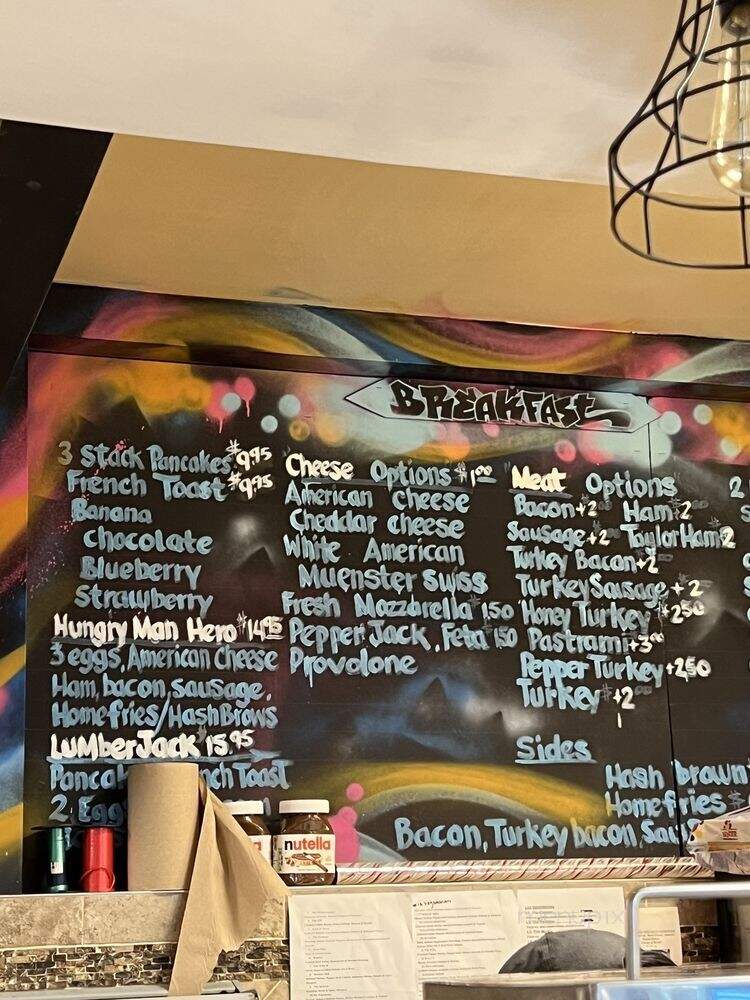 BREAKFAST
3 Stack Pancakes $9.95
French Toast $9.95
Banana
chocolate
Blueberry
Strawberry
Hungry Man Hero $14.95
3 eggs, American Cheese
Ham, bacon, sausage,
Homefries/HashBrows
LUMBerJack $15.95
Pancak nch Toast
2 Egg
Cheese Options $1.00
American Cheese
Cheddar cheese
White American
Muenster Swiss
Fresh Mozzarella $1.50
Pepper Jack, Feta $1.50
Provolone
Meat Options
Bacon +2 Ham 2
Sausage +2 Taylor Ham 2
Turkey Bacon +2
Turkey Sausage + 2
Honey Turkey $2.50
Pastrami +3
Pepper Turkey +2.50
Turkey +2
Sides
Hash brown
Homefries
Bacon, Turkey bacon, Saus
nutella